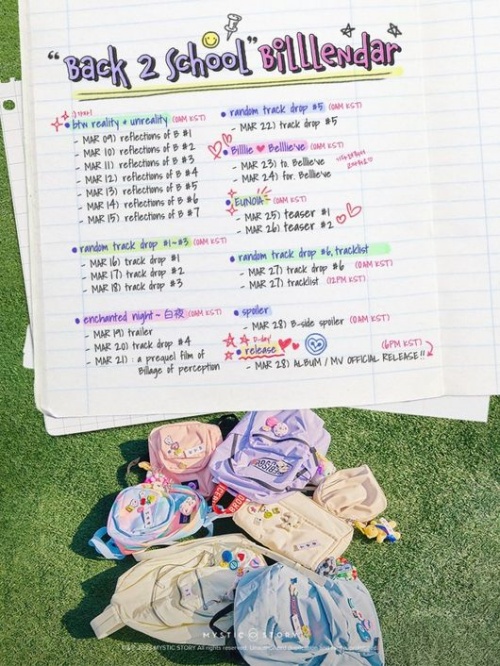 "Back 2 School" Billlendar
btw reality & unreality (0AM KST)
- MAR 09) reflections of B #1
- MAR 10) reflections of B #2
- MAR 11) reflections of B #3
- MAR 12) reflections of B #4
- MAR 13) reflections of B #5
- MAR 14) reflections of B #6
- MAR 15) reflections of B #7
random track drop #1~#3 (0AM KST)
- MAR 16) track drop #1
- MAR 17) track drop #2
- MAR 18) track drop #3
enchanted night ~ 白夜 (0AM KST)
- MAR 19) trailer
- MAR 20) track drop #4
- MAR 21) : a prequel film of
Billage of perception
random track drop #5 (0AM KST)
- MAR 22) track drop #5
Billlie ♥ Belllie've (0AM KST)
- MAR 23) to. Belllie've
- MAR 24) for. Belllie've
EUNOIA ~ (0AM KST)
- MAR 25) teaser #1
- MAR 26) teaser #2
random track drop #6, tracklist
- MAR 27) track drop #6 (0AM KST)
- MAR 27) tracklist (12PM KST)
spoiler
- MAR 28) B-side spoiler (0AM KST)
D-day
release (6PM KST)
- MAR 28) ALBUM / MV OFFICIAL RELEASE!!
MYSTIC STORY
2023 MYSTIC STORY All rights reserved.